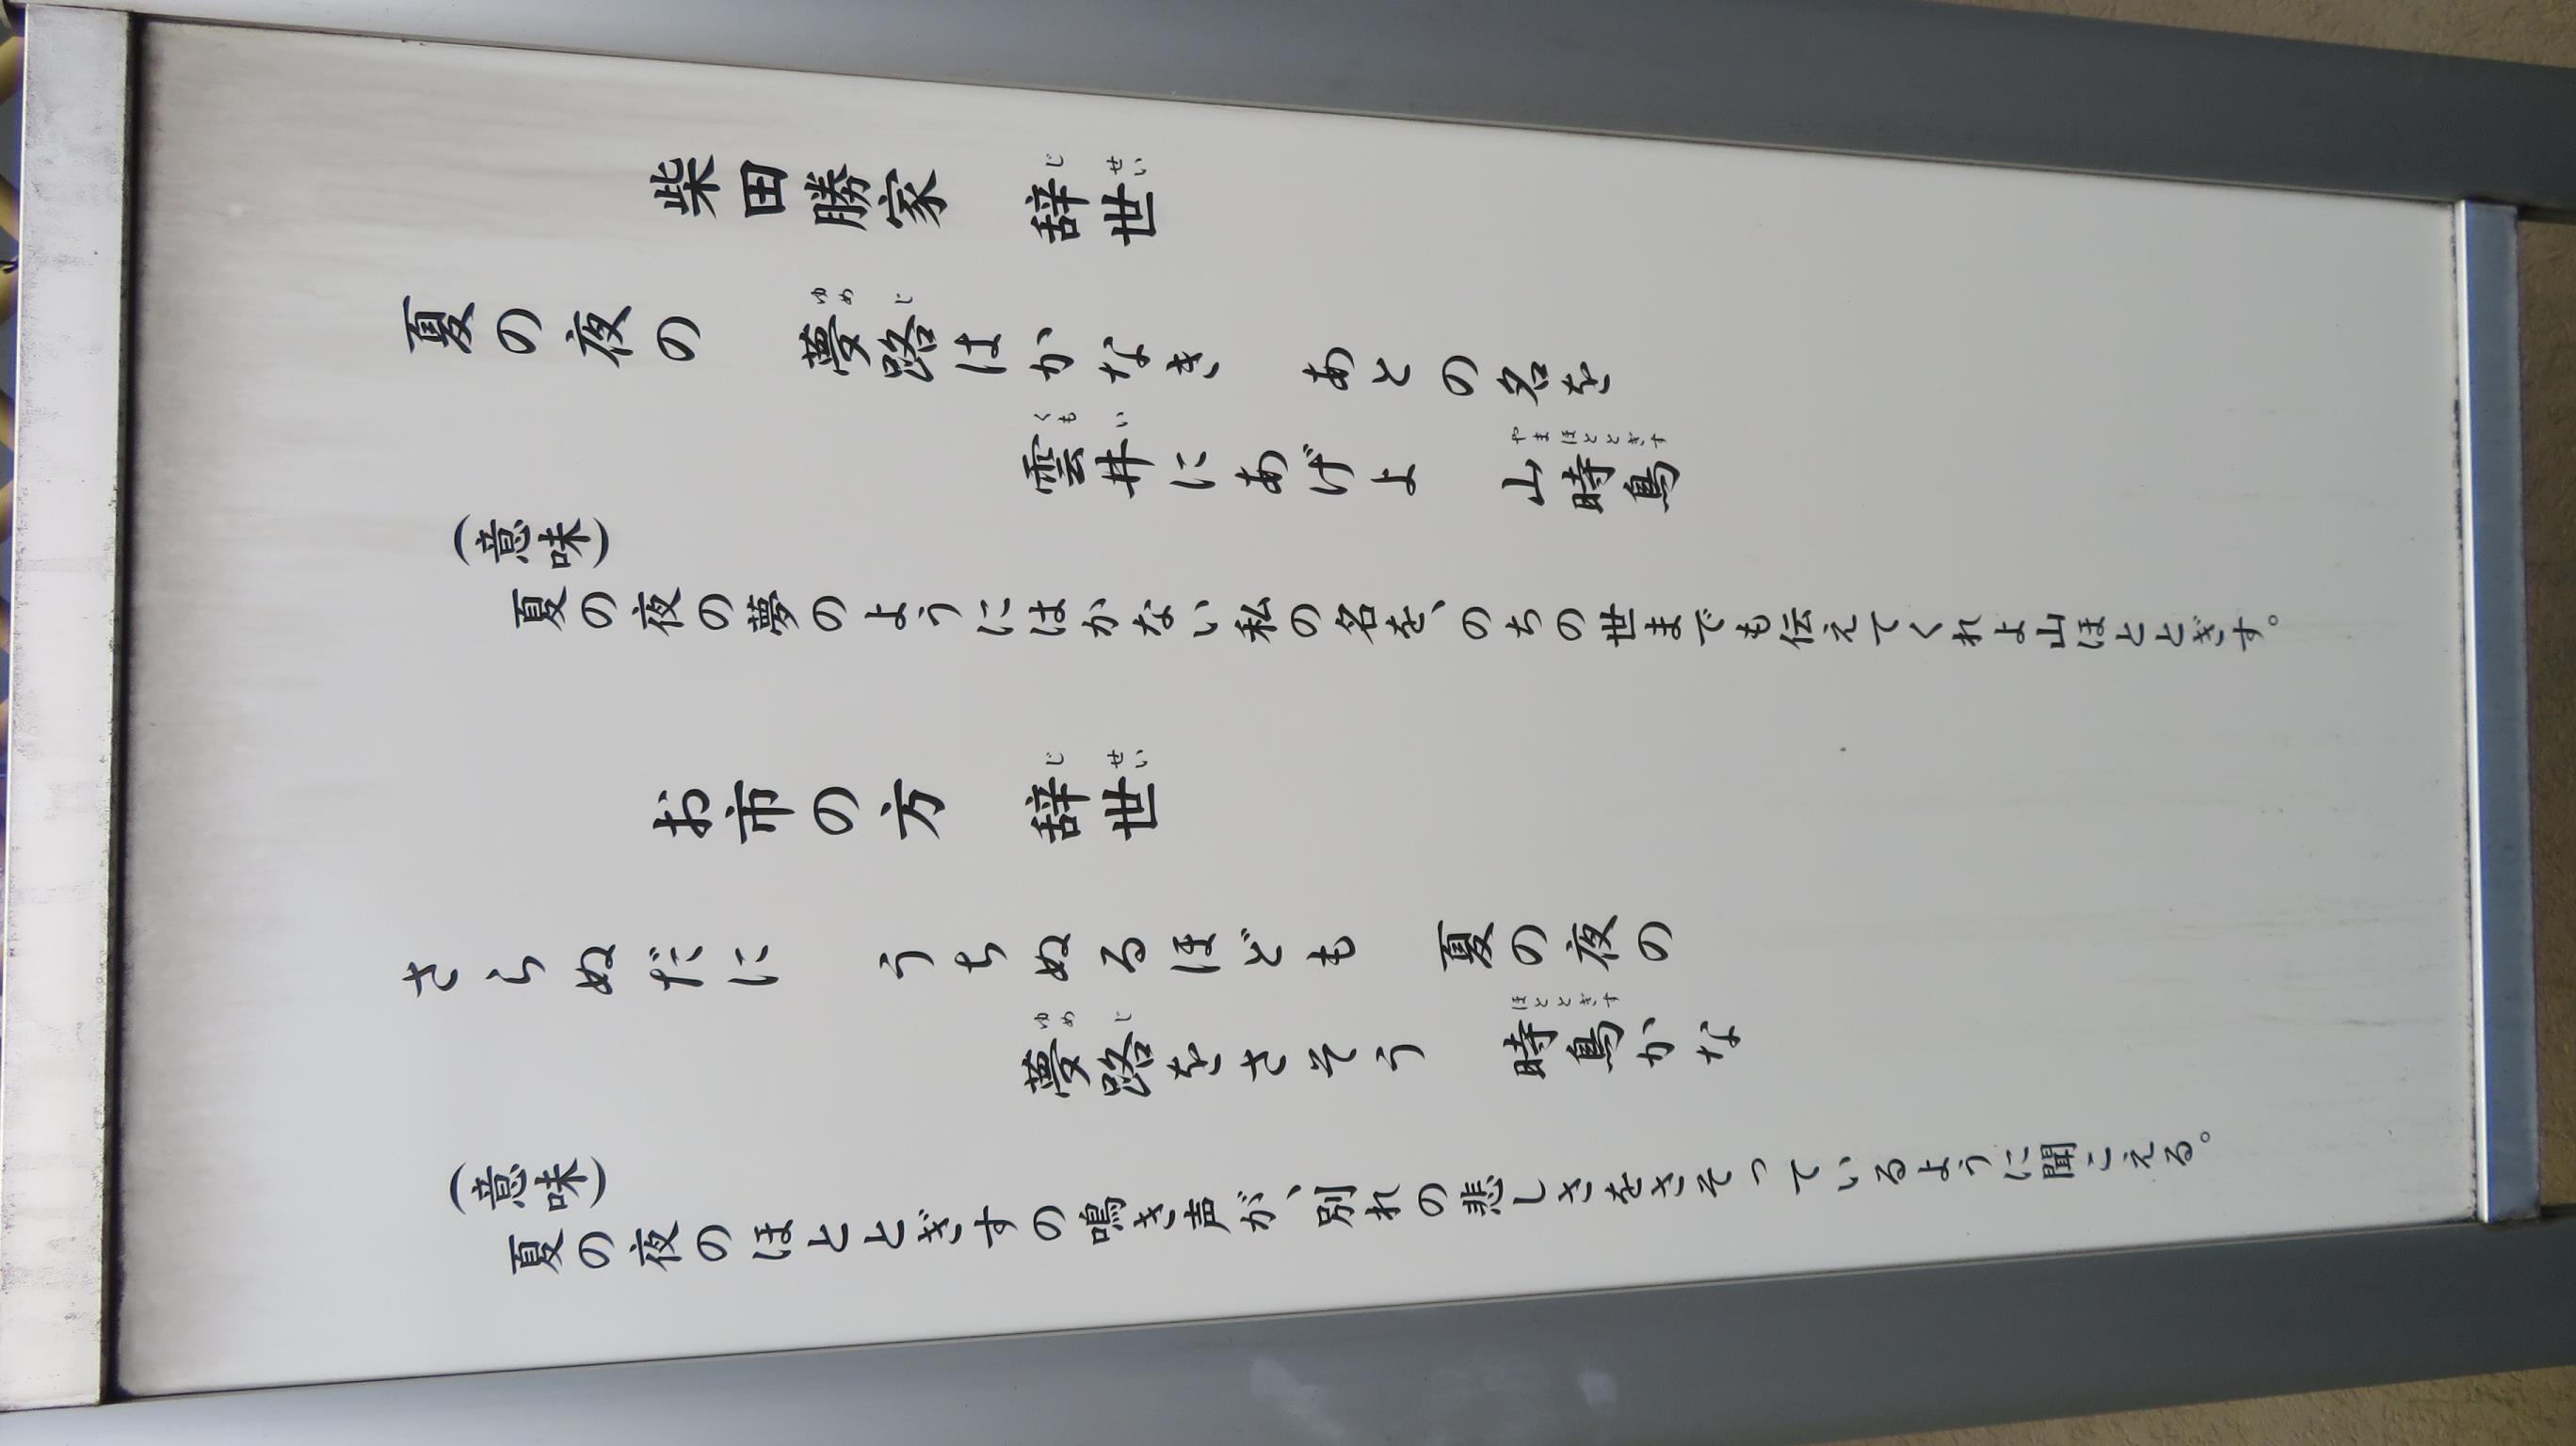 柴田勝家　辞世
じ せい
夏の夜の　夢路はかなき　あとの名を
ゆめ じ
雲井にあげよ　山時鳥
くも い　やまほととぎす
(意味)
夏の夜の夢のようにはかない私の名を、のちの世までも伝えてくれよ山ほととぎす。
お市の方　辞世
じ せい
さらぬだに　うちぬるほども　夏の夜の
夢路をさそう　時鳥かな
ゆめ じ　ほととぎす
(意味)
夏の夜のほととぎすの鳴き声が、別れの悲しさをさそっているように聞こえる。